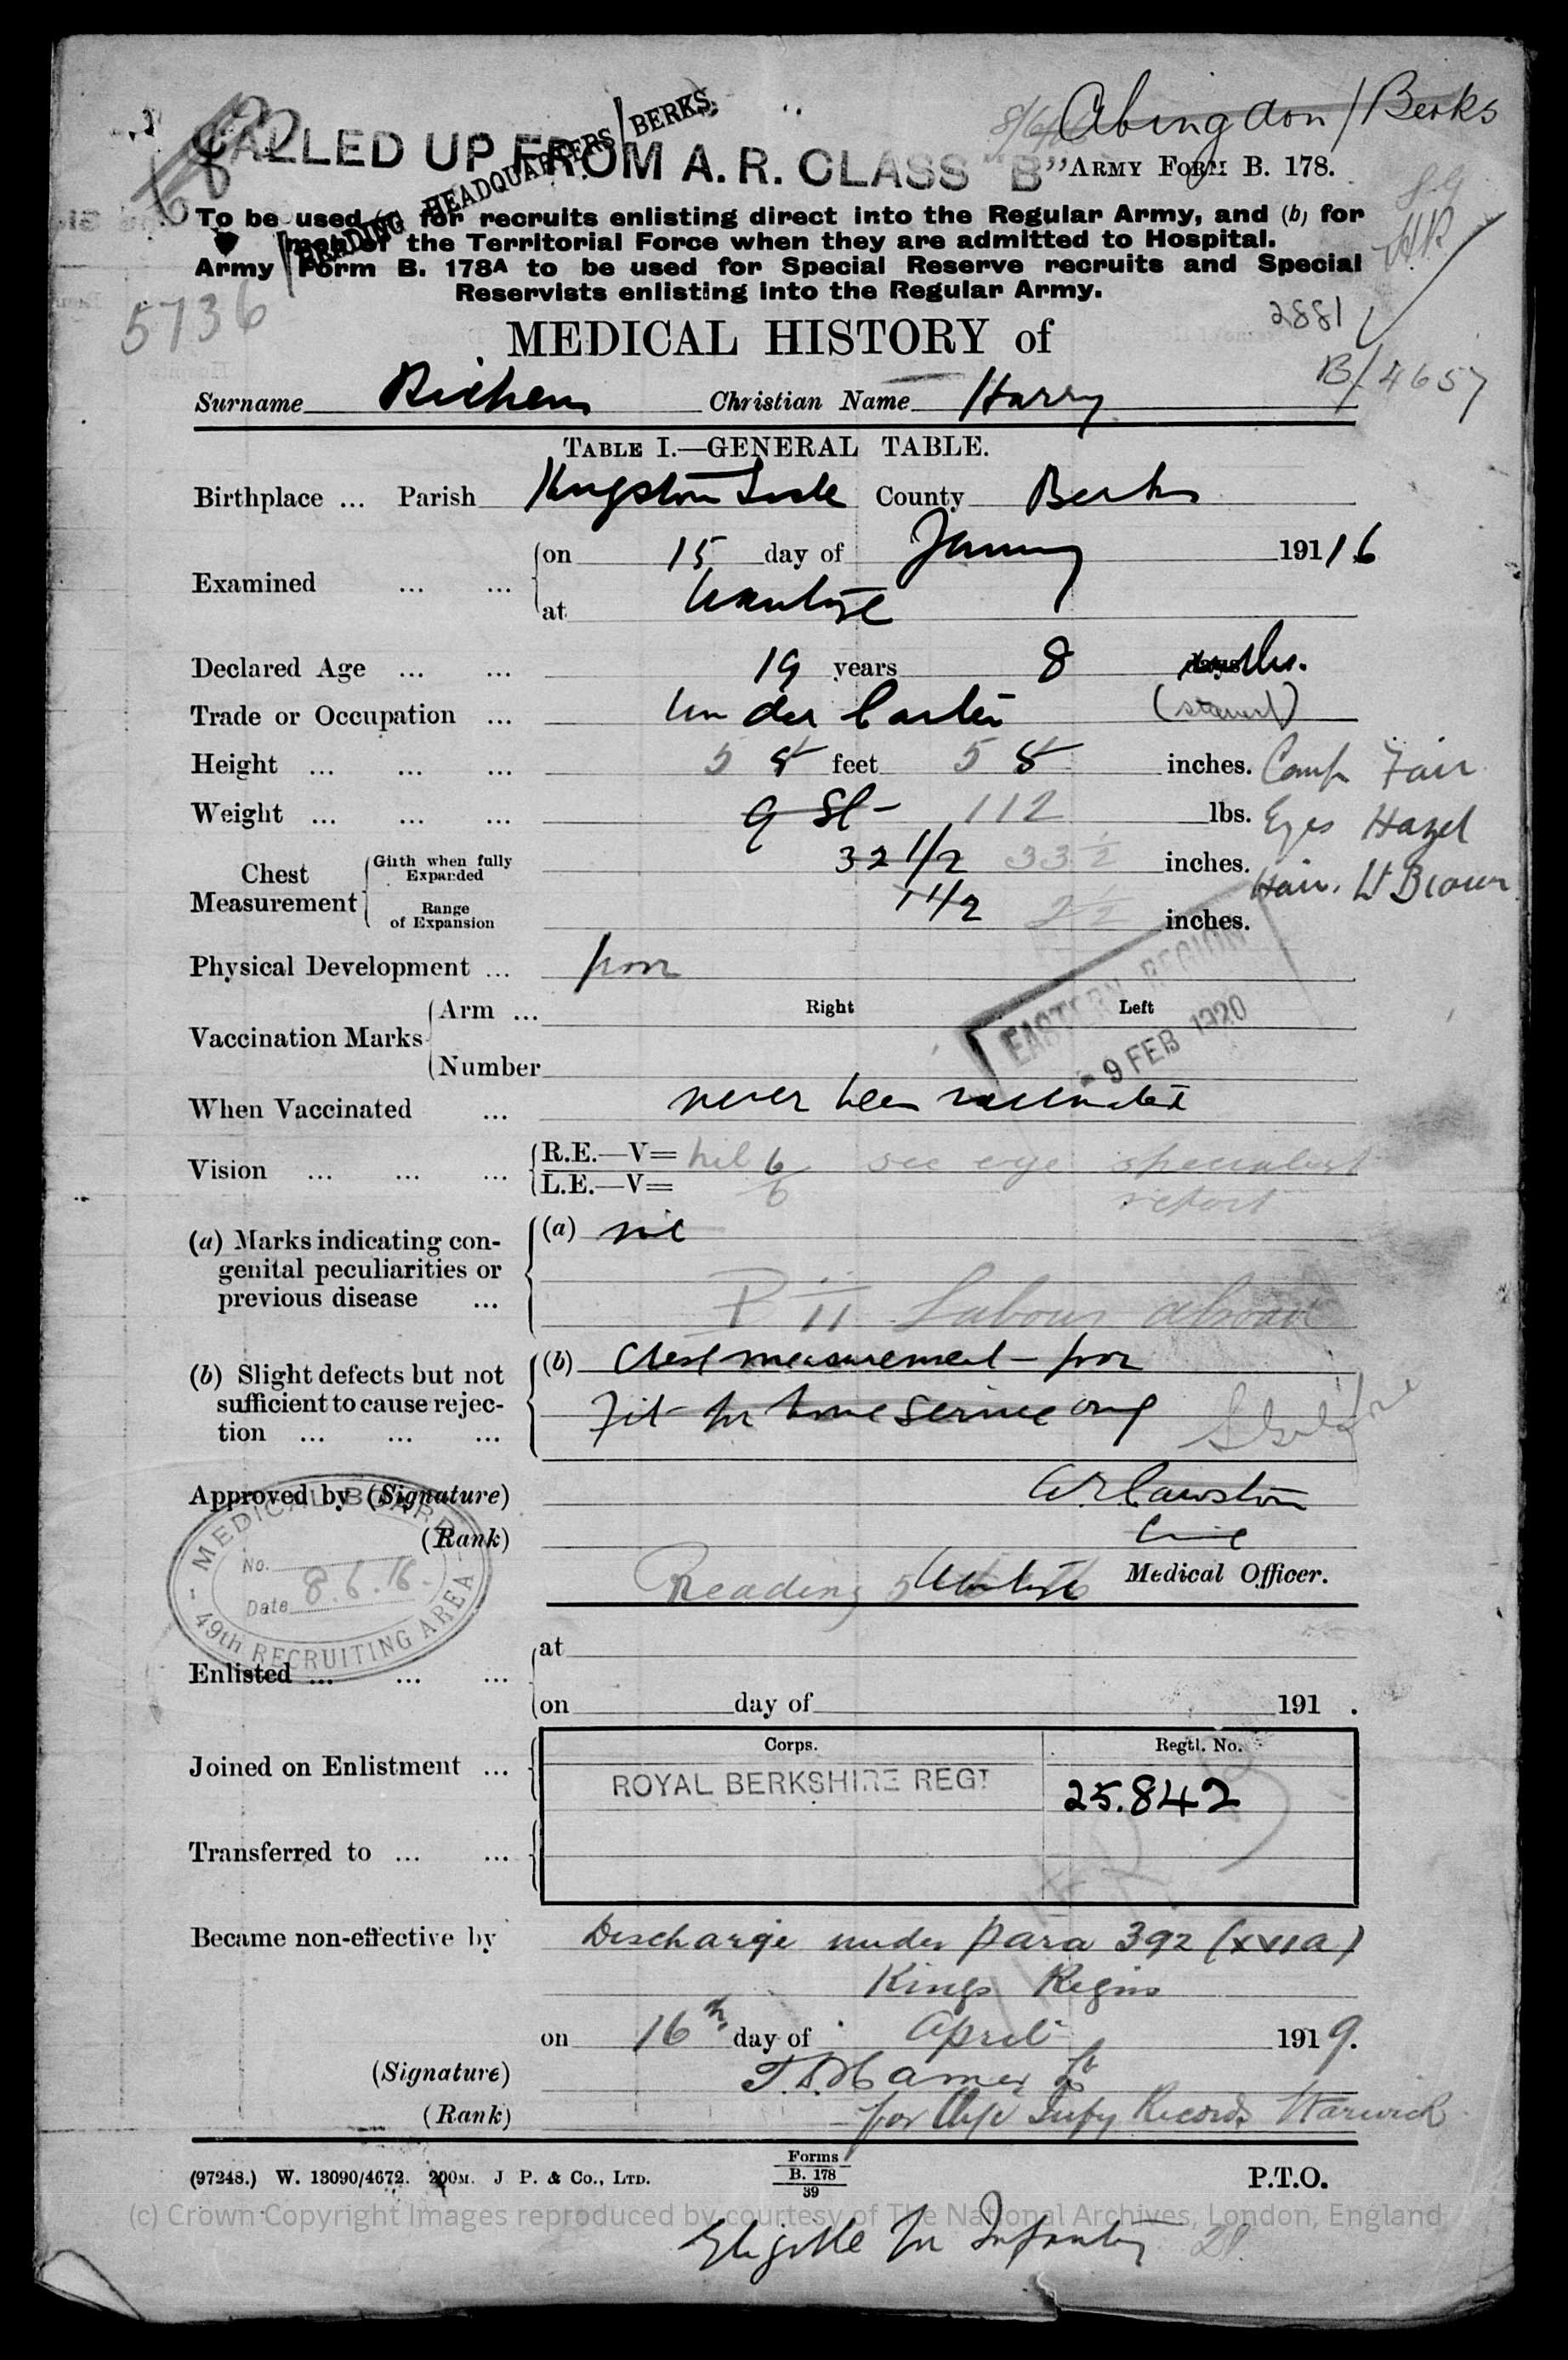 Abingdon / Berks
CALLED UP FROM A.R. CLASS "B"
READING HEADQUARTERS BERKS.
ARMY FORM B. 178.
To be used (a) for recruits enlisting direct into the Regular Army, and (b) for
men of the Territorial Force when they are admitted to Hospital.
Army Form B. 178A to be used for Special Reserve recruits and Special
Reservists enlisting into the Regular Army.
5736
2881
MEDICAL HISTORY of
B/4657
Surname Richens Christian Name Harry
TABLE I.—GENERAL TABLE.
Birthplace ... Parish Kingston Lisle County Berks
Examined ... ... on 15 day of January 191/6
at Wantage
Declared Age ... ... 19 years 8 months.
Trade or Occupation ... Under Carter
Height ... ... ... 5 feet 5 inches. Comp Fair
Weight ... ... ... 9 St - 112 lbs. Eyes Hazel
Chest Measurement Girth when fully Expanded 32 1/2 33 1/2 inches.
Hair. Lt Brown
Range of Expansion 1 1/2 2 1/2 inches.
Physical Development ... poor
EASTERN REGION
- 9 FEB 1920
Vaccination Marks Arm ... Right Left
Number
When Vaccinated ... never been vaccinated
Vision ... ... ... R.E.—V= nil 6/6 see eye specialist
L.E.—V= report
(a) Marks indicating con-
genital peculiarities or
previous disease ... (a) nil
B ii Labour abroad
(b) Slight defects but not
sufficient to cause rejec-
tion ... ... ... (b) Chest measurement - poor
Fit for home service only
Approved by (Signature) Cawston
(Rank)
Reading Wantage Medical Officer.
MEDICAL BOARD
No.
Date 8.6.16.
49th RECRUITING AREA
Enlisted ... ... ... at
on day of 191 .
Corps. Regtl. No.
Joined on Enlistment ... ROYAL BERKSHIRE REGT 25.842
Transferred to ... ...
Became non-effective by Discharge under para 392 (XVIa)
Kings Regns
on 16th day of April 1919.
(Signature) Hamer Lt
(Rank) for Infy Records Warwick
(97248.) W. 13090/4672. 200M. J P. & Co., LTD. Forms B. 178 39 P.T.O.
(c) Crown Copyright Images reproduced by courtesy of The National Archives, London, England
Eligible for Infantry